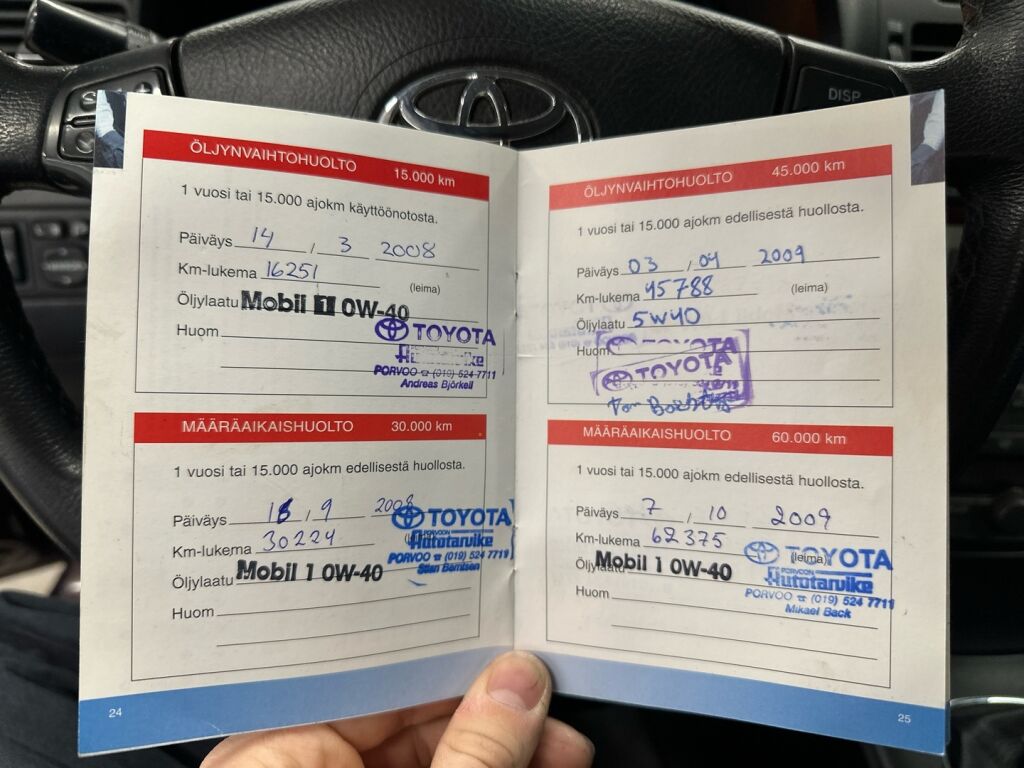 DISP
ÖLJYNVAIHTOHUOLTO 15.000 km
1 vuosi tai 15.000 ajokm käyttöönotosta.
Päiväys 14 / 3 2008
Km-lukema 16251
(leima)
Öljylaatu Mobil 1 0W-40
Huom
TOYOTA
PORVOO ☎ (019) 524 7711
Andreas Björkell
MÄÄRÄAIKAISHUOLTO 30.000 km
1 vuosi tai 15.000 ajokm edellisestä huollosta.
Päiväys 18 , 9 2008
Km-lukema 30224
TOYOTA
PORVOON
Autotarvike
PORVOO ☎ (019) 524 7719
Öljylaatu Mobil 1 0W-40
Huom
24
ÖLJYNVAIHTOHUOLTO 45.000 km
1 vuosi tai 15.000 ajokm edellisestä huollosta.
Päiväys 03 / 04 2009
Km-lukema 45788
(leima)
Öljylaatu 5W40
Huom
TOYOTA
TOYOTA
MÄÄRÄAIKAISHUOLTO 60.000 km
1 vuosi tai 15.000 ajokm edellisestä huollosta.
Päiväys 7 , 10 2009
Km-lukema 62375
(leima)
Öljylaatu Mobil 1 0W-40
Huom
TOYOTA
PORVOON
Autotarvike
PORVOO ☎ (019) 524 7711
Mikael Back
25